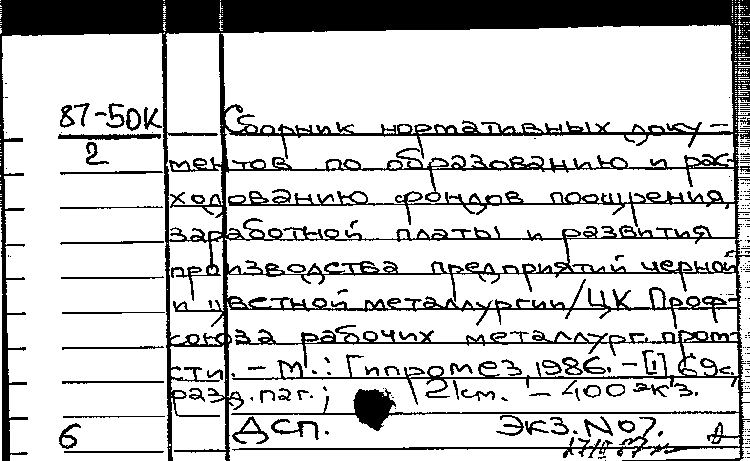 87-5DK
2
Сборник нормативных доку-
ментов по образованию и рас-
ходованию фондов поощрения,
заработной платы и развития
производства предприятий черной
и цветной металлургии/ЦК Проф-
союза рабочих металлург. пром-
сти. - М.: Гипромез, 1986. - [1], 69 с.
разд. паг.; 21 см. - 400 экз.
6 ДСП. Экз. №07.